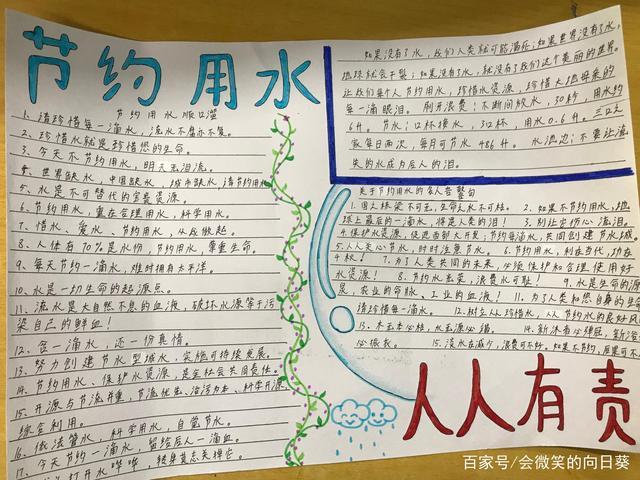 节约用水
节约用水顺口溜
1、请珍惜每一滴水，流水不腐永不复。
2、珍惜水就是珍惜您的生命。
3、今天不节约用水，明天无泪流。
4、世界缺水，中国缺水，城市缺水，请节约用水
5、水是不可替代的宝贵资源。
6、节约用水，重在合理用水，科学用水。
7、惜水、爱水、节约用水，从我做起。
8、人体有70%是水份，节约用水，尊重生命。
9、每天节约一滴水，难时拥有太平洋。
10、水是一切生命的起源点。
11、流水是大自然不息的血液，破坏水源等于污
染自己的鲜血！
12、含一滴水，还一份真情。
13、努力创建节水型城市，实施可持续发展。
14、节约用水、保护水资源，是全社会共同责任。
15、开源与节流并重，节流优先、治污为本、科学开源、
综合利用。
16、依法管水，科学用水，自觉节水。
17、今天节约一滴水，留给后人一滴血。
打开水哗哗，转身莫忘关掉它。
如果没有了水，我们人类就可能消失；如果世界没有了水，
地球就会干裂；如果没有了水，就没有了我们这个美丽的世界。
让我们每个人节约用水，珍惜水资源，珍惜大地母亲的
每一滴眼泪。刷牙浪费：不断间放水，30秒，用水约
6升。节水：口杯接水，3口杯，用水0.6升。三口之
家每日两次，每月可节水486升。水流边：不要让流
失的水成为后人的泪。
关于节约用水的名人告警句
1.国无栋梁不可王，生命无水不可枝。2.如果不节约用水，地
球上最后的一滴水，将是人类的泪！3.别让它伤心流泪。
4.保护水资源，促进西部大开发；节约每滴水，共同创建节水城
5.人人关心节水，时时注意节水。6.节约用水，利在当代，功在
千秋！7.为了人类共同的未来，必须维护和合理使用好
水资源！8.节约水光荣，浪费水可耻！9.水是生命的源
泉，农业的命脉，工业的血液！11.为了人类和您自身的生命
请珍惜每一滴水。12.树立人人珍惜水，人人节约水的良好风
13.木无本必枯，水无源必竭。14.新沐者必弹冠，新浴
必振衣。15.淡水在减少，浪费可不好。如果不节约，后果可不
人人有责
百家号/会微笑的向日葵